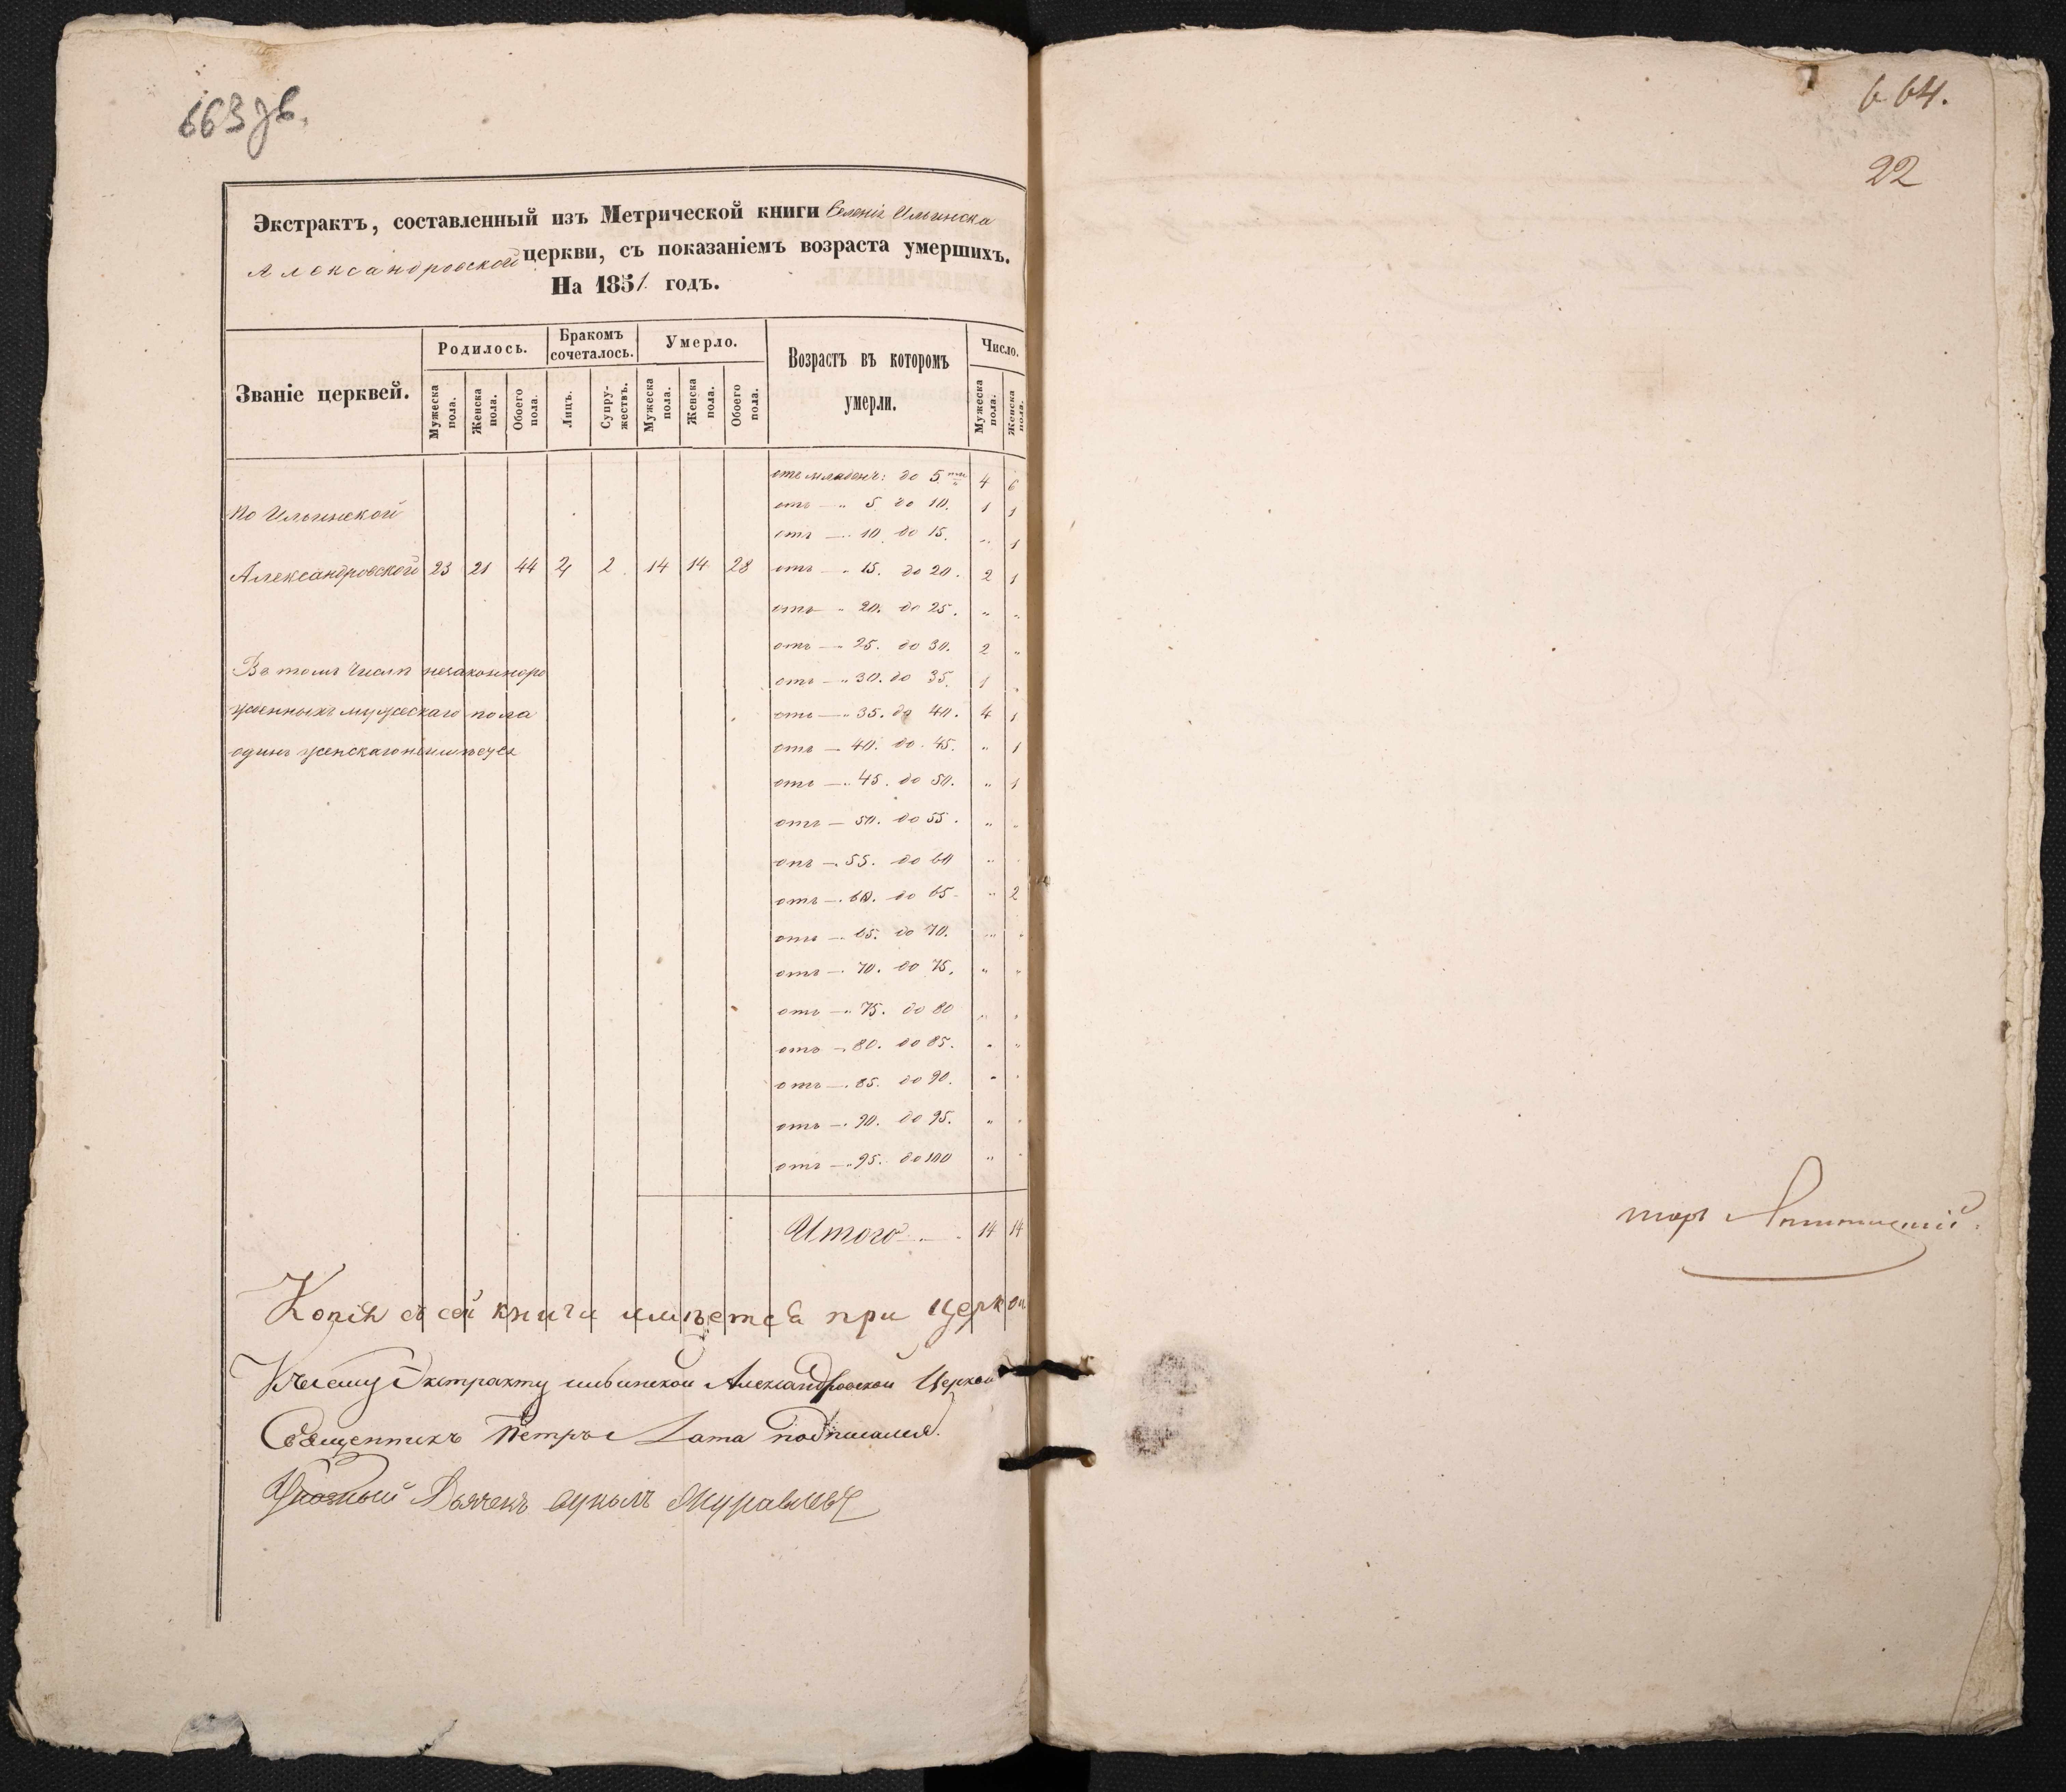 663 зв.
Экстрактъ, составленный изъ Метрической книги Селенія Ильинска
Александровской церкви, съ показаніемъ возраста умершихъ.
На 1851 годъ.
Званіе церквей.
Родилось.
Бракомъ сочеталось.
Умерло.
Возрастъ въ которомъ умерли.
Число.
Мужеска пола.
Женска пола.
Обоего пола.
Лицъ.
Супру-жествъ.
Мужеска пола.
Женска пола.
Обоего пола.
Мужеска пола.
Женска пола.
отъ младенч: до 5 4 6
По Ильинской
отъ — „ 5 до 10. 1 1
отъ — 10. до 15. „ 1
Александровской 23 21 44 4 2 14 14 28 отъ — 15. до 20. 2 1
отъ „ 20. до 25. „ „
отъ — 25. до 30. 2 „
Въ томъ числѣ незаконноро
отъ — „ 30. до 35. 1 „
жденныхъ мужескаго пола
отъ — 35. до 40. 4 1
одинъ женскаго
отъ — 40. до 45. „ 1
отъ — 45. до 50. „ 1
отъ — 50. до 55. „ „
отъ — 55. до 60 „ „
отъ — 60. до 65 „ 2
отъ — 65. до 70. „ „
отъ — 70. до 75. „ „
отъ — 75. до 80 „ „
отъ — 80. до 85. „ „
отъ — 85. до 90. „ „
отъ — 90. до 95. „ „
отъ — 95. до 100 „ „
Итого 14 14
Копія съ сей книги имѣется при Церкви
Къ сему Экстракту ильинской Александровской Церкви
Священникъ Петръ Лата подписался.
Дьячекъ Муравьевъ
664.
22